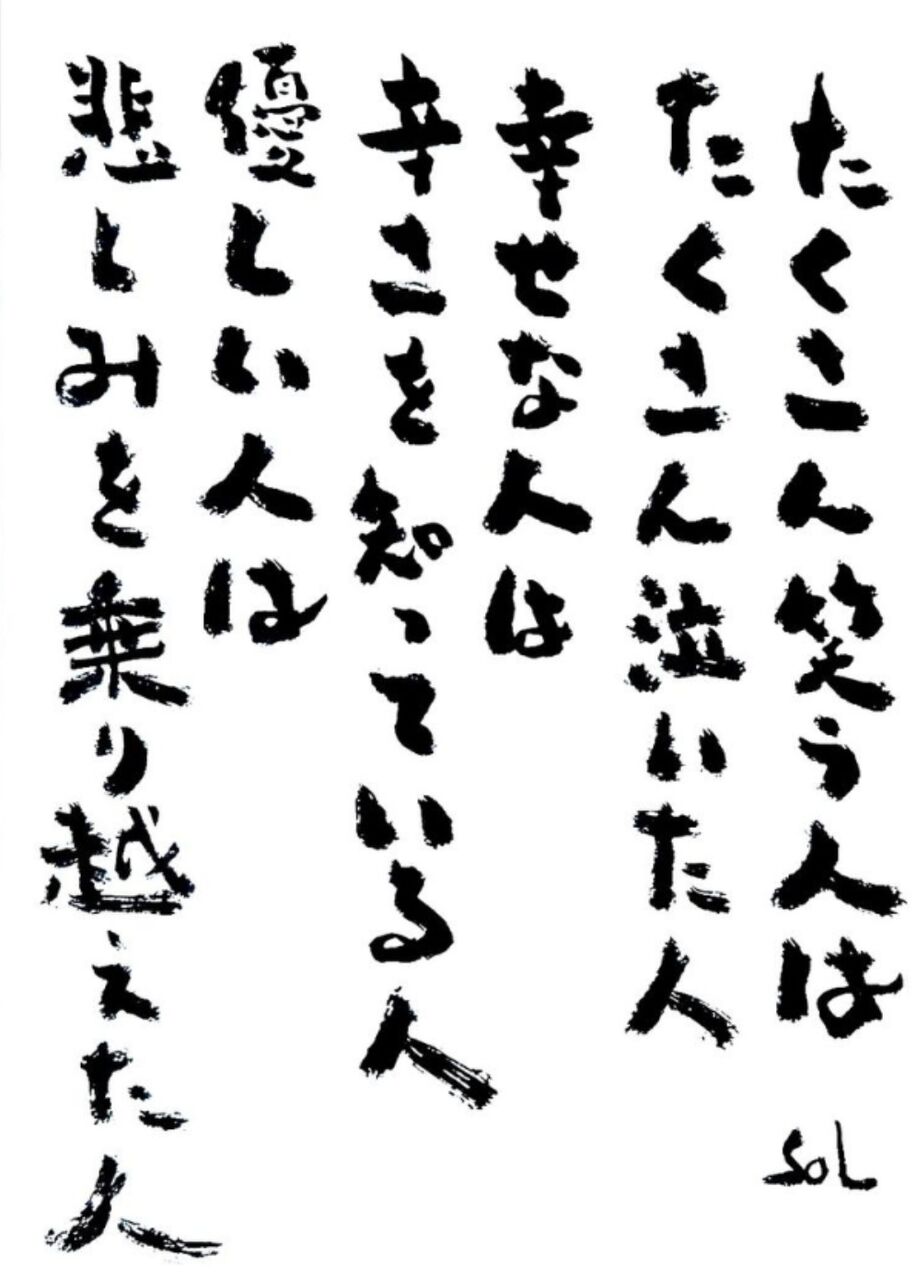 たくさん笑う人は
たくさん泣いた人
幸せな人は
辛さを知っている人
優しい人は
悲しみを乗り越えた人
SOL